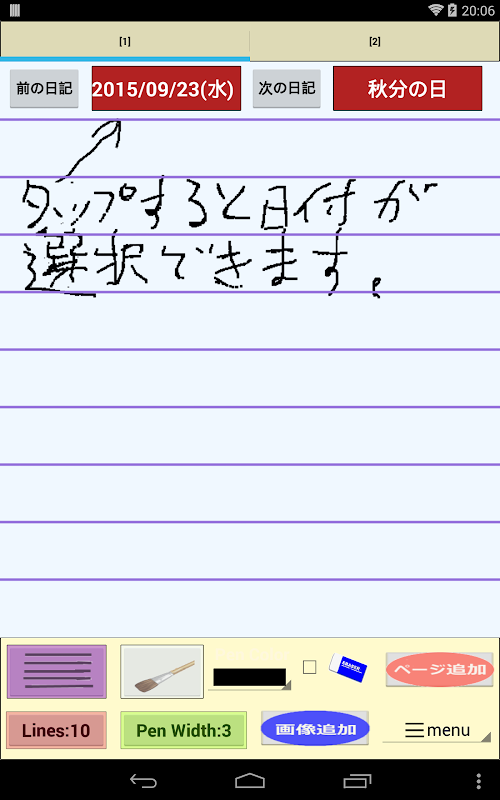 20:06
[1] [2]
前の日記 2015/09/23(水) 次の日記 秋分の日
タップすると日付が
選択できます。
ページ追加
Lines:10 Pen Width:3 画像追加 menu